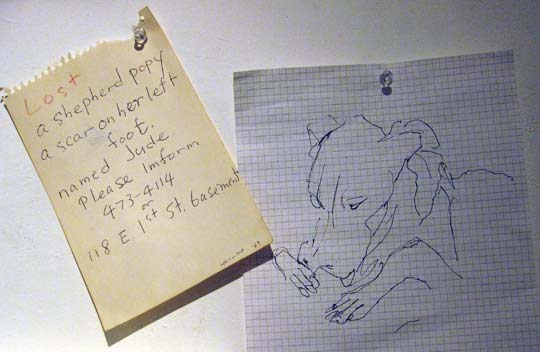 Lost
a shepherd popy
a scar on her left
foot.
named Jude
please Imform
473-4114
or
118 E 1st St. basement